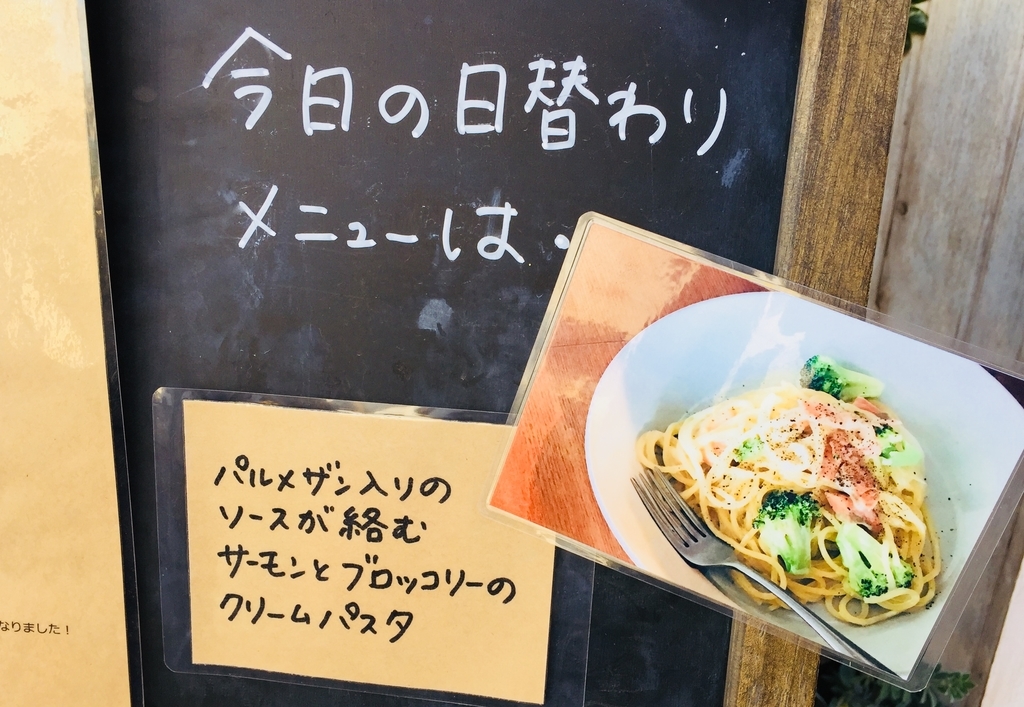 今日の日替わり
メニューは・
パルメザン入りの
ソースが絡む
サーモンとブロッコリーの
クリームパスタ
なりました！